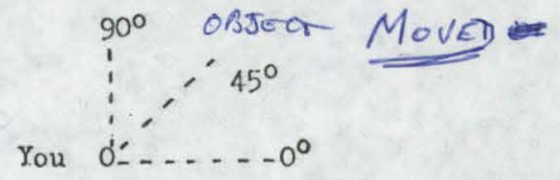 90° OBJECT MOVED
45°
You 0 0°